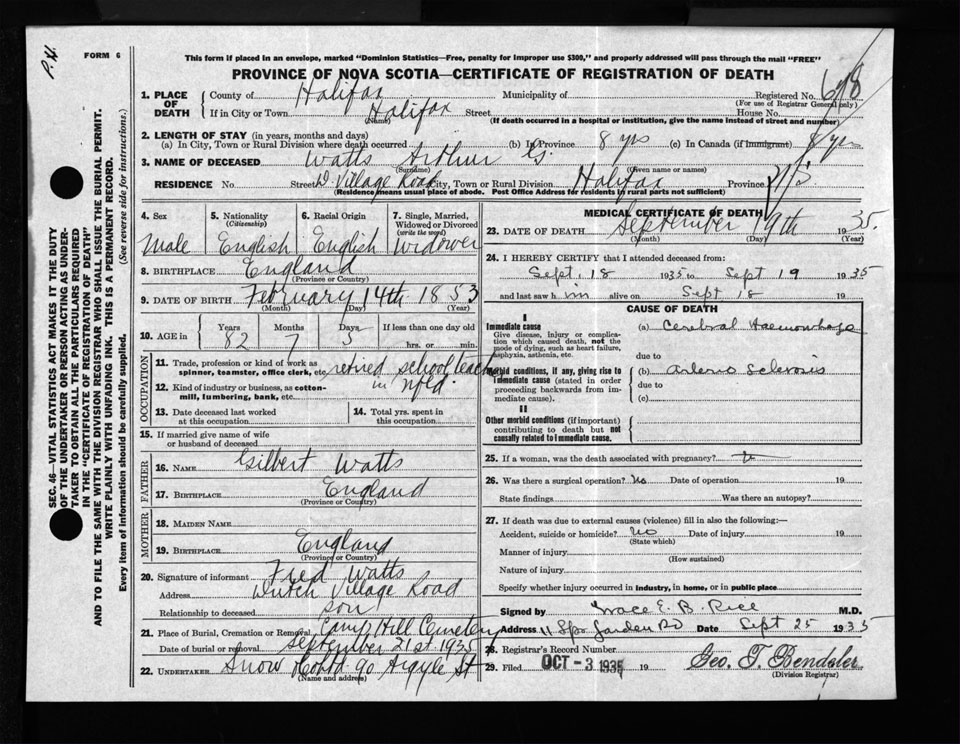 P.H.
FORM 6
This form if placed in an envelope, marked "Dominion Statistics—Free, penalty for improper use $300," and properly addressed will pass through the mail "FREE"
PROVINCE OF NOVA SCOTIA—CERTIFICATE OF REGISTRATION OF DEATH
1. PLACE OF DEATH
County of Halifax Municipality of Registered No. 678
(For use of Registrar General only)
If in City or Town Halifax Street House No.
(Name) (If death occurred in a hospital or institution, give the name instead of street and number)
2. LENGTH OF STAY (in years, months and days)
(a) In City, Town or Rural Division where death occurred (b) In Province 8 yrs (c) In Canada (if immigrant) 8 yrs
3. NAME OF DECEASED Watts Arthur G.
(Surname) (Given name or names)
RESIDENCE No. Street D. Village Road City, Town or Rural Division Halifax Province N.S.
(Residence means usual place of abode. Post Office Address for residents in rural parts not sufficient)
4. Sex Male
5. Nationality (Citizenship) English
6. Racial Origin English
7. Single, Married, Widowed or Divorced (write the word) Widower
8. BIRTHPLACE England
(Province or Country)
9. DATE OF BIRTH February 14th 1853
(Month) (Day) (Year)
10. AGE in Years 82 Months 7 Days 5 If less than one day old hrs. or min.
OCCUPATION
11. Trade, profession or kind of work as spinner, teamster, office clerk, etc. retired school teacher
12. Kind of industry or business, as cotton-mill, lumbering, bank, etc. in Nfld.
13. Date deceased last worked at this occupation
14. Total yrs. spent in this occupation
15. If married give name of wife or husband of deceased
FATHER
16. NAME Gilbert Watts
17. BIRTHPLACE England
(Province or Country)
MOTHER
18. MAIDEN NAME
19. BIRTHPLACE England
(Province or Country)
20. Signature of informant Fred Watts
Address Dutch Village Road
Relationship to deceased son
21. Place of Burial, Cremation or Removal Camp Hill Cemetery
Date of burial or removal September 21st 1935
22. UNDERTAKER Snow & Co Ltd 90 Argyle St
(Name and address)
MEDICAL CERTIFICATE OF DEATH
23. DATE OF DEATH September 19th 1935.
(Month) (Day) (Year)
24. I HEREBY CERTIFY that I attended deceased from:
Sept. 18 1935 to Sept 19 1935
and last saw him alive on Sept 18 19
CAUSE OF DEATH
I
Immediate cause
Give disease, injury or complication which caused death, not the mode of dying, such as heart failure, asphyxia, asthenia, etc.
(a) Cerebral Haemorrhage
due to
Morbid conditions, if any, giving rise to immediate cause (stated in order proceeding backwards from immediate cause).
(b) Arterio Sclerosis
due to
(c)
II
Other morbid conditions (if important) contributing to death but not causally related to immediate cause.
25. If a woman, was the death associated with pregnancy?
26. Was there a surgical operation? No Date of operation 19
State findings Was there an autopsy?
27. If death was due to external causes (violence) fill in also the following:—
Accident, suicide or homicide? no Date of injury 19
(State which)
Manner of injury
(How sustained)
Nature of injury
Specify whether injury occurred in industry, in home, or in public place
Signed by Grace E. B. Rice M.D.
Address 11 Spr Garden Rd Date Sept 25 1935
28. Registrar's Record Number
29. Filed OCT - 3 1935 19 Geo. T. Bendeler
(Division Registrar)
SEC. 46—VITAL STATISTICS ACT MAKES IT THE DUTY
OF THE UNDERTAKER OR PERSON ACTING AS UNDER-
TAKER TO OBTAIN ALL THE PARTICULARS REQUIRED
IN THE "CERTIFICATE OF REGISTRATION OF DEATH"
AND TO FILE THE SAME WITH THE DIVISION REGISTRAR WHO SHALL ISSUE THE BURIAL PERMIT.
WRITE PLAINLY WITH UNFADING INK. THIS IS A PERMANENT RECORD.
Every item of information should be carefully supplied. (See reverse side for instructions.)